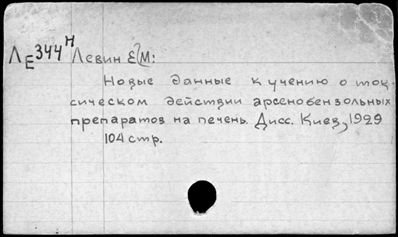 ЛЕ344Н Левин Е?М:
Новые данные к учению о ток-
сическом действии арсенобензольных
препаратов на печень. Дисс. Киев, 1929
104 стр.